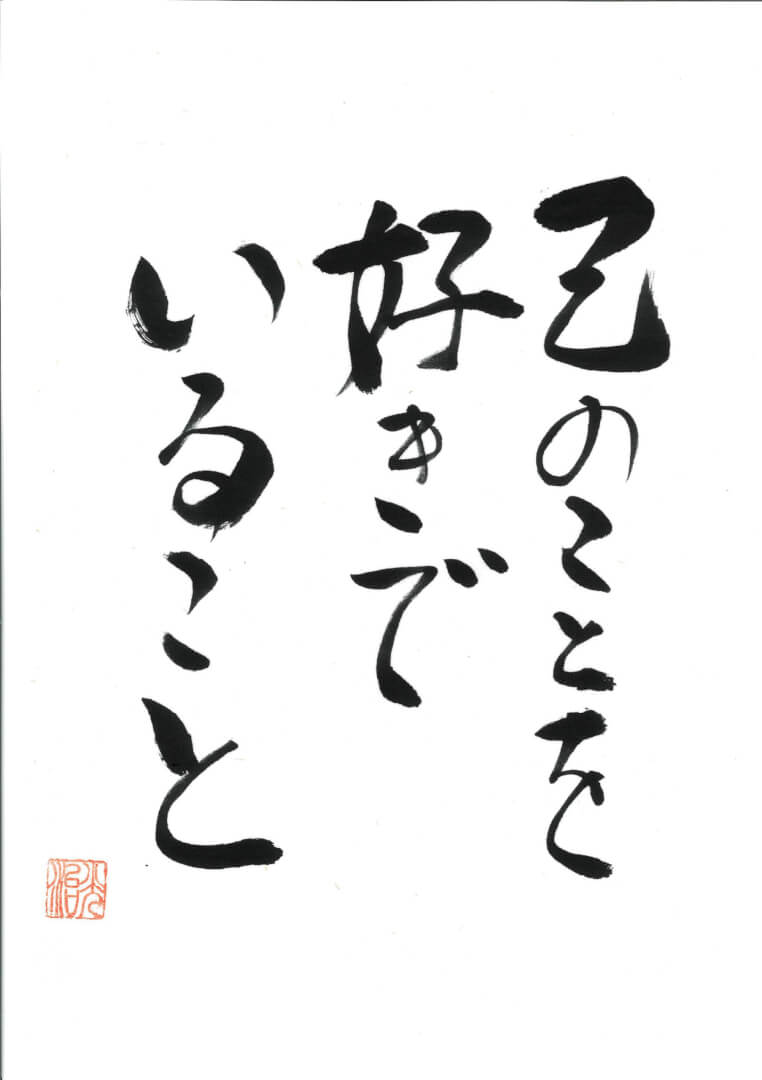 己のことを
好きで
いること